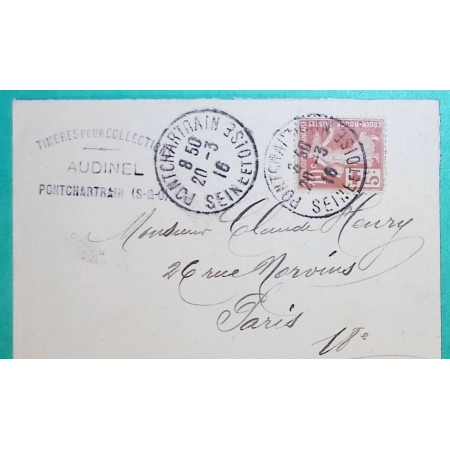 TIMBRES POUR COLLECTIO
AUDINEL
PONTCHARTRAIN (S-&-O)
PONTCHARTRAIN
8 50
20 -3
16
SEINE ET OISE
PONTCHARTRAIN
8 50
20 -3
16
SEINE ET OISE
CROIX-ROUGE
POSTES
5c
Monsieur Claude Henry
26 rue Norvins
Paris
18e